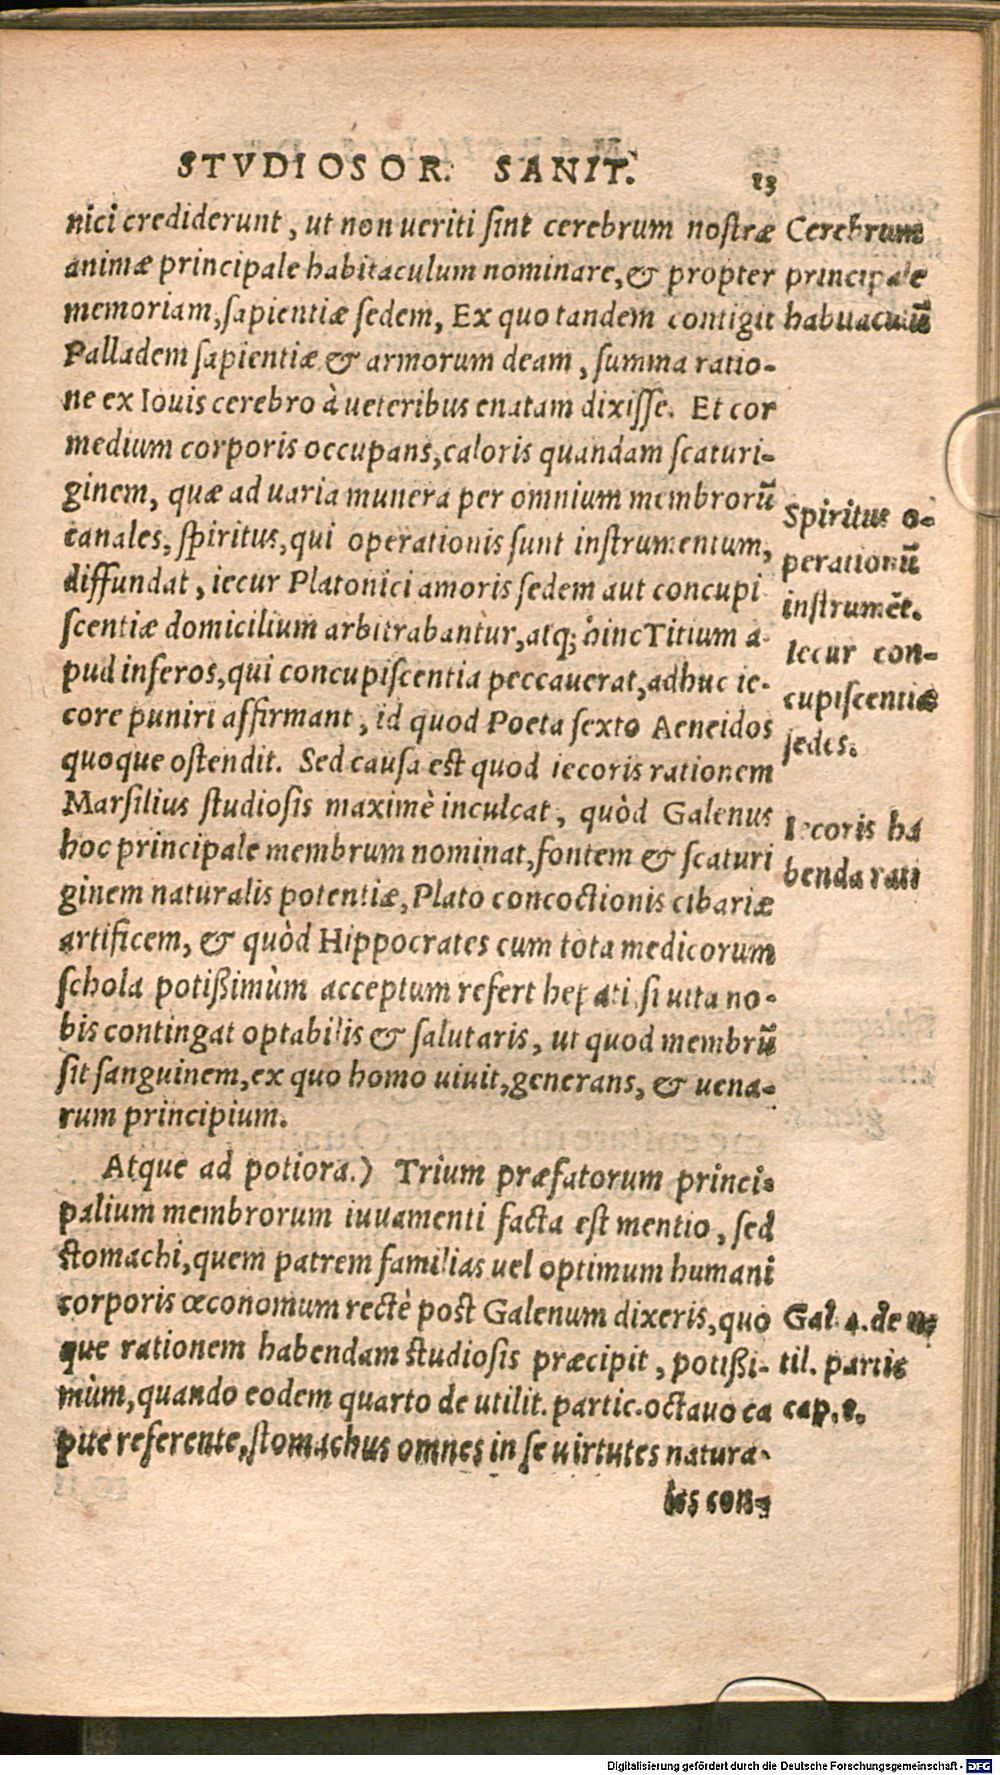 STVDIOSOR. SANIT. 23
nici crediderunt, ut non ueriti ſint cerebrum noſtræ
animæ principale habitaculum nominare, & propter
memoriam, ſapientiæ ſedem, Ex quo tandem contigit
Palladem ſapientiæ & armorum deam, ſumma ratio-
ne ex Iouis cerebro à ueteribus enatam dixiſſe. Et cor
medium corporis occupans, caloris quandam ſcaturi-
ginem, quæ ad uaria munera per omnium membrorū
canales, ſpiritus, qui operationis ſunt inſtrumentum,
diffundat, iecur Platonici amoris ſedem aut concupi
ſcentiæ domicilium arbitrabantur, atq; hinc Titium a-
pud inferos, qui concupiſcentia peccauerat, adhuc ie-
core puniri affirmant, id quod Poeta ſexto Aeneidos
quoque oſtendit. Sed cauſa eſt quod iecoris rationem
Marſilius ſtudioſis maximè inculcat, quòd Galenus
hoc principale membrum nominat, fontem & ſcaturi
ginem naturalis potentiæ, Plato concoctionis cibariæ
artificem, & quòd Hippocrates cum tota medicorum
ſchola potißimùm acceptum refert hepati ſi uita no-
bis contingat optabilis & ſalutaris, ut quod membrū
ſit ſanguinem, ex quo homo uiuit, generans, & uena-
rum principium.
Atque ad potiora.) Trium præfatorum princi-
palium membrorum iuuamenti facta eſt mentio, ſed
ſtomachi, quem patrem familias uel optimum humani
corporis œconomum rectè poſt Galenum dixeris, quo
que rationem habendam ſtudioſis præcipit, potißi-
mùm, quando eodem quarto de utilit. partic. octauo ca
pite referente, ſtomachus omnes in ſe uirtutes natura-
les con-
Cerebrum
principale
habitaculū
Spiritus o-
perationū
inſtrumēt.
Iecur con-
cupiſcentiæ
ſedes.
Iecoris ha
benda rati
Gal. 4. de u-
til. partic
cap. 8.
Digitalisierung gefördert durch die Deutsche Forschungsgemeinschaft - DFG